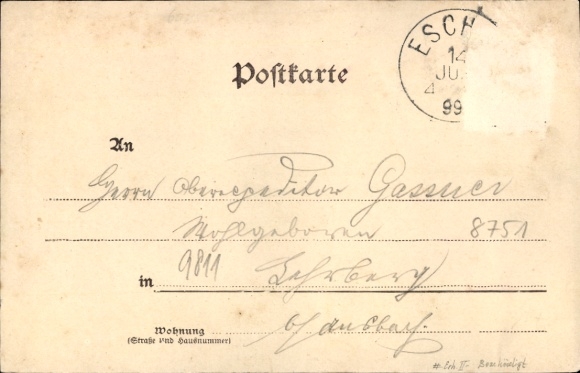 ESCH
14
JU
4
99
Postkarte
An
Herrn Oberexpeditor Gassner
Wohlgeboren 8751
in 9811 Lehrberg
b/ Ansbach.
Wohnung
(Straße und Hausnummer)
Beschädigt